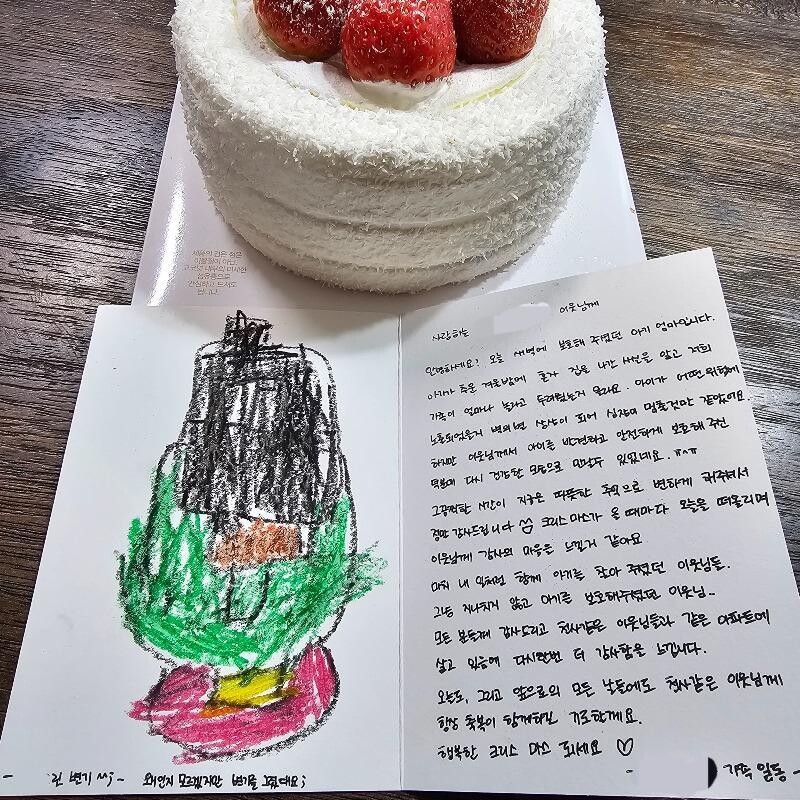 제품의 검은 점은
이물질이 아닌
코코넛 내부의 미세한
섬유층으로
안심하고 드셔도
됩니다.
사랑하는 이웃님께
안녕하세요? 오늘 새벽에 보호해 주셨던 아기 엄마입니다.
아기가 추운 겨울밤에 혼자 집을 나간 사실을 알고 저희
가족이 얼마나 놀라고 두려웠는지 몰라요. 아이가 어떤 위험에
노출되었을지 별의별 상상이 되어 심장이 멈출것만 같았어요.
하지만 이웃님께서 아이를 발견하고 안전하게 보호해 주신
덕분에 다시 건강한 모습으로 만날수 있었네요. ㅠ^ㅠ
그 끔찍한 시간이 지금은 따뜻한 추억으로 변하게 해주셔서
정말 감사드립니다 ^^ 크리스마스가 올 때마다 오늘을 떠올리며
이웃님께 감사의 마음을 느낄거 같아요.
마치 내 일처럼 함께 아기를 찾아 주셨던 이웃님들.
그냥 지나치지 않고 아기를 보호해주셨던 이웃님..
모든 분들께 감사드리고 천사같은 이웃님들과 같은 아파트에
살고 있음에 다시한번 더 감사함을 느낍니다.
오늘도, 그리고 앞으로의 모든 날들에도 천사같은 이웃님께
항상 축복이 함께하길 기도할게요.
행복한 크리스마스 되세요 ♡
가족 일동 -
린 변기 ^^; ~ 왜인지 모르겠지만 변기를 그렸대요;